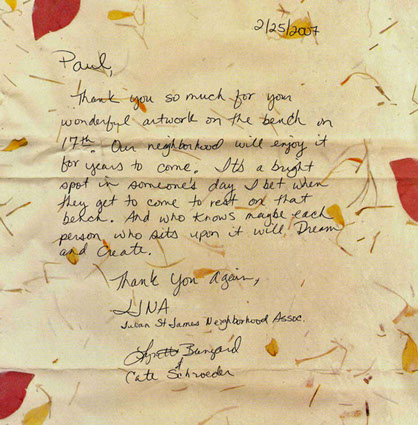 2/25/2007
Paul,
Thank you so much for your
wonderful artwork on the bench on
17th. Our neighborhood will enjoy it
for years to come. Its a bright
spot in someone's day I bet when
they get to come to rest on that
bench. And who knows maybe each
person who sits upon it will Dream
and Create.
Thank You Again,
JSJNA
Julian St James Neighborhood Assoc.
Bunyard
&
Cate Schroeder